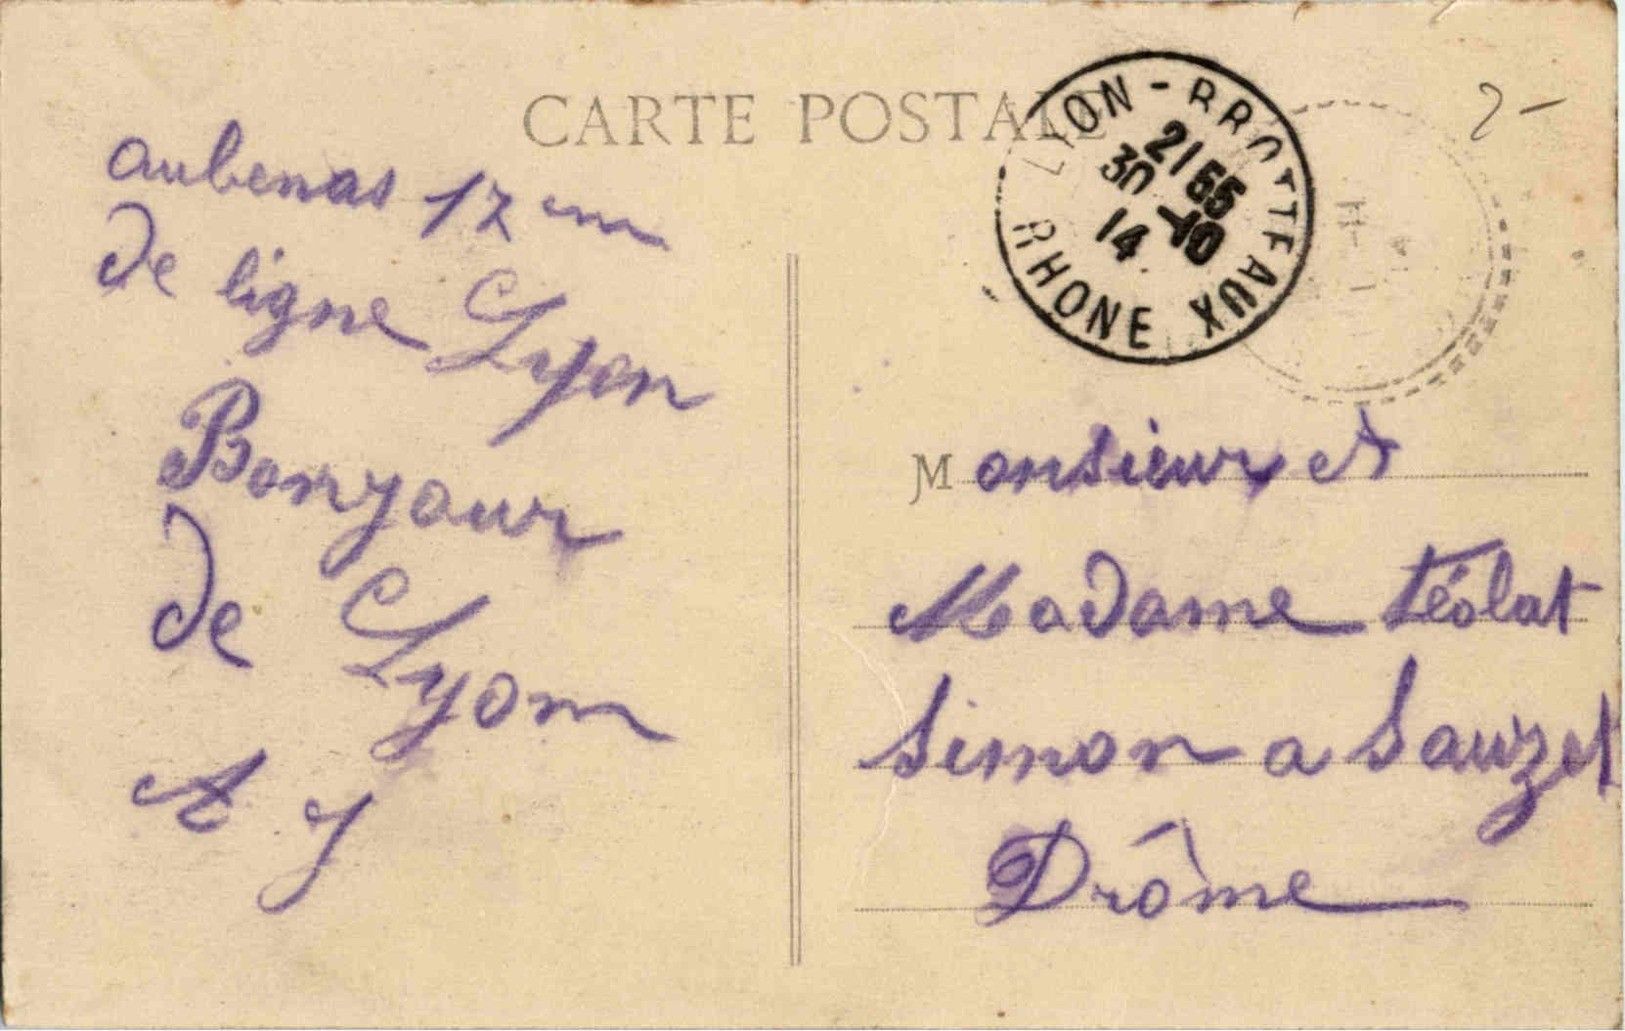 CARTE POSTALE
LYON - BROTTEAUX
2155
30 -10
14
RHONE
2 -
aubenas 17 em
de ligne Lyon
Bonjour
de Lyon
A J
Monsieur et
Madame Téolat
Simon a Sauzet
Drôme